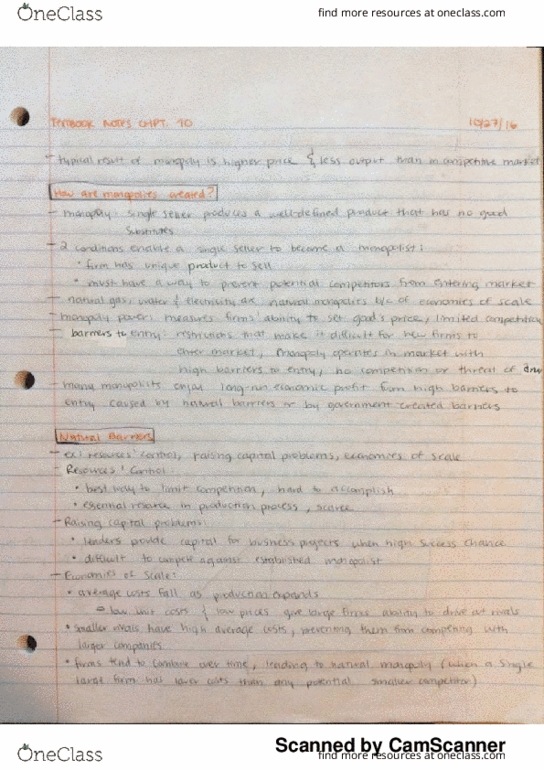 OneClass
find more resources at oneclass.com
TEXTBOOK NOTES CHPT. 10
10/27/16
- typical result of monopoly is higher price & less output than in competitive market
How are monopolies created?
- monopoly: single seller produces a well-defined product that has no good
substitutes
- 2 conditions enable a single seller to become a monopolist:
• firm has unique product to sell
• must have a way to prevent potential competitors from entering market
- natural gas, water & electricity are natural monopolies b/c of economies of scale
- monopoly power: measures firms' ability to set good's price, limited competition
barriers to entry: restrictions that make it difficult for new firms to
enter market, monopoly operates in market with
high barriers to entry, no competition or threat of
- many monopolists enjoy long-run economic profit from high barriers to
entry caused by natural barriers or by government-created barriers
Natural Barriers
- ex: resources' control, raising capital problems, economies of scale
- Resources' Control:
• best way to limit competition, hard to accomplish
• essential resource in production process, scarce
- Raising capital problems:
• lenders provide capital for business projects when high success chance
• difficult to compete against established monopolist
- Economies of Scale:
• average costs fall as production expands
low unit costs & low prices give large firms ability to drive out rivals
• smaller rivals have high average costs, preventing them from competing with
larger companies
• firms tend to combine over time, leading to natural monopoly (when a single
large firm has lower costs than any potential smaller competitor)
Scanned by CamScanner
OneClass
find more resources at oneclass.com